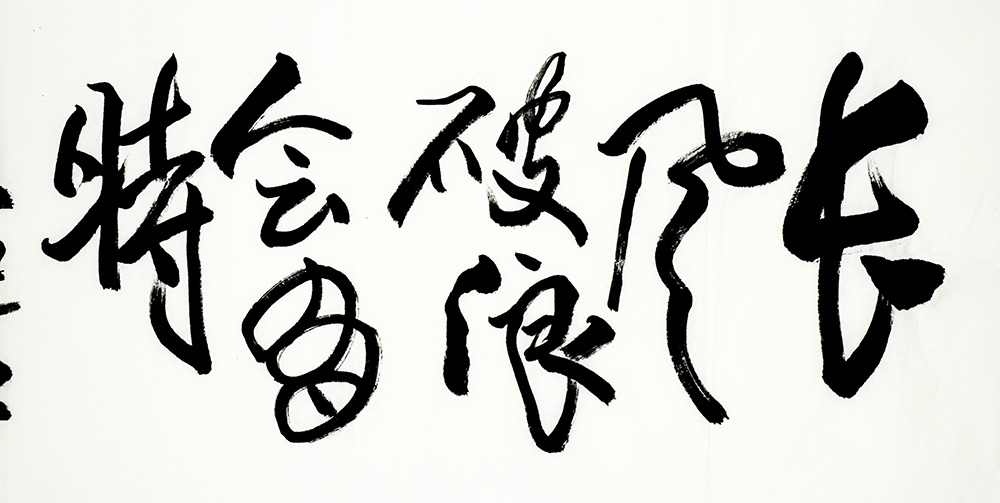 长
风
破浪
会当
时